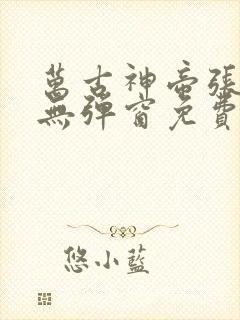 萬古神帝張
無彈窗免費
悠小藍